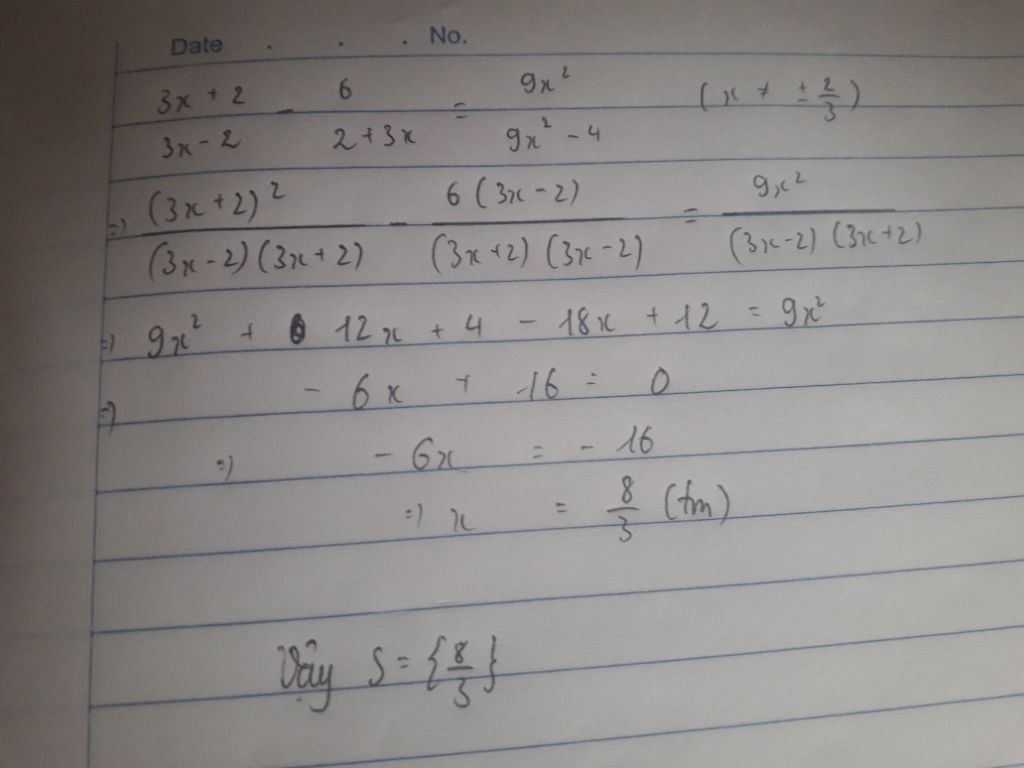 Date . . . No.
3x + 2 / 3x - 2 - 6 / 2 + 3x = 9x² / 9x² - 4 (x ≠ ± 2/3)
=) (3x + 2)² / (3x - 2)(3x + 2) - 6(3x - 2) / (3x + 2)(3x - 2) = 9x² / (3x - 2)(3x + 2)
=) 9x² + 12x + 4 - 18x + 12 = 9x²
=) - 6x + 16 = 0
=) - 6x = - 16
=) x = 8/3 (tm)
Vậy S = {8/3}